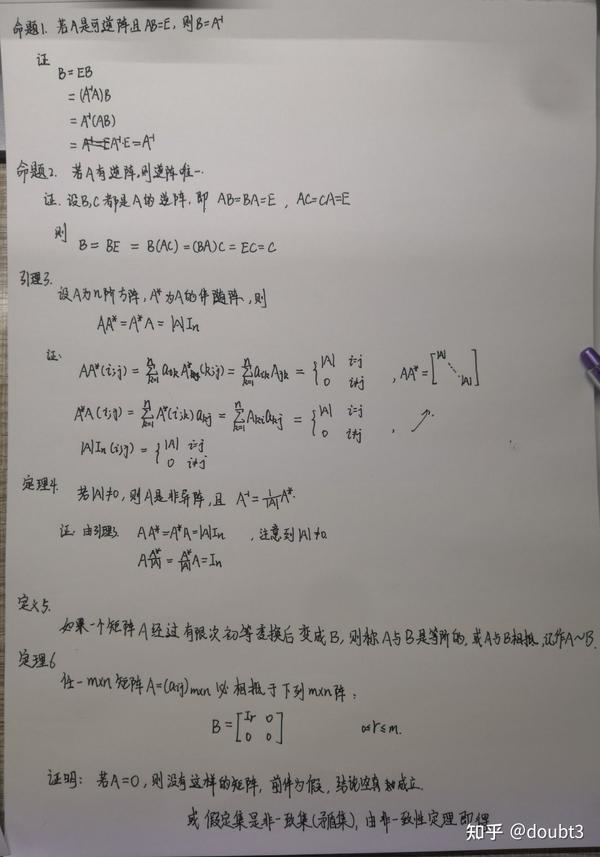 命题1. 若A是可逆阵且AB=E, 则B=A⁻¹
证
B=EB
=(A⁻¹A)B
=A⁻¹(AB)
=A⁻¹·E=A⁻¹
命题2. 若A有逆阵,则逆阵唯一.
证. 设B,C都是A的逆阵, 即 AB=BA=E, AC=CA=E
则
B=BE=B(AC)=(BA)C=EC=C
引理3.
设A为n阶方阵, A*为A的伴随阵, 则
AA*=A*A=|A|In
证:
AA*(i;j)=∑ₖ₌₁ⁿ aᵢₖA*(k;j)=∑ₖ₌₁ⁿ aᵢₖAⱼₖ={|A| i=j, 0 i≠j, AA*=[|A| ⋱ |A|]
A*A(i;j)=∑ₖ₌₁ⁿ A*(i;k)aₖⱼ=∑ₖ₌₁ⁿ Aₖᵢaₖⱼ={|A| i=j, 0 i≠j, ↗
|A|In(i;j)={|A| i=j, 0 i≠j
定理4.
若|A|≠0, 则A是非异阵, 且 A⁻¹=1/|A| A*.
证: 由引理3. AA*=A*A=|A|In, 注意到|A|≠0.
A A*/|A| = A*/|A| A=In
定义5.
如果一个矩阵A经过有限次初等变换后变成B, 则称A与B是等价的, 或A与B相抵, 记作A~B.
定理6
任一m×n矩阵A=(aij)m×n必相抵于下列m×n阵:
B=[Ir 0; 0 0] 0<r≤m.
证明: 若A=0, 则没有这样的矩阵, 前件为假, 结论空真地成立.
或假定集是非一致集(矛盾集), 由非一致性定理即得
知乎 @doubt3